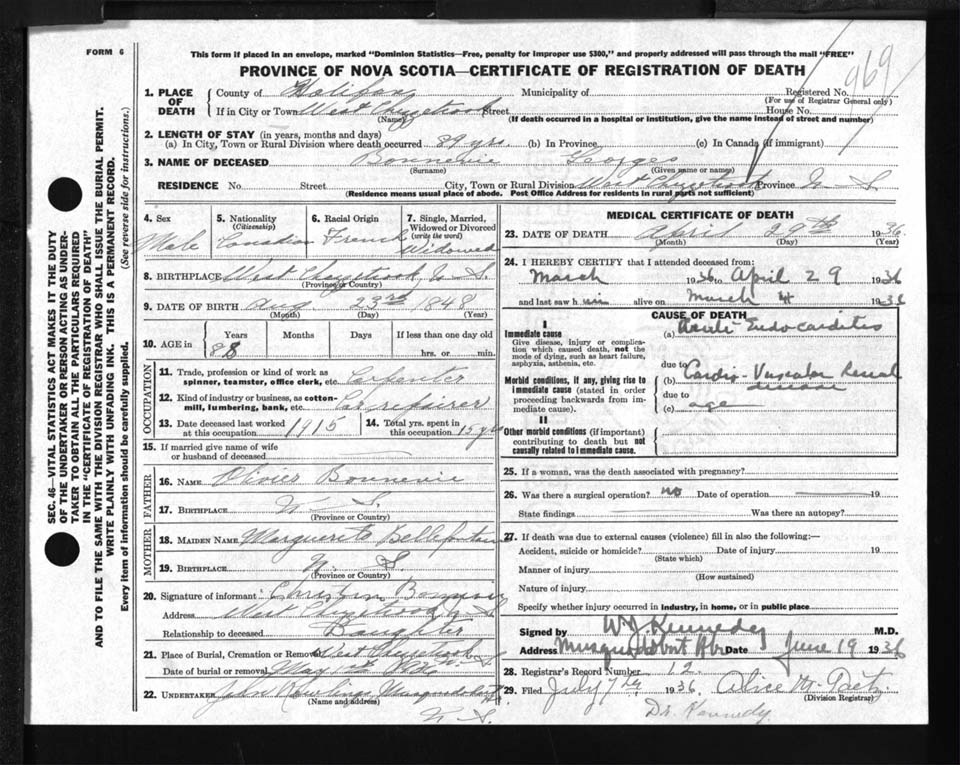 FORM 6
This form if placed in an envelope, marked "Dominion Statistics—Free, penalty for improper use $300," and properly addressed will pass through the mail "FREE"
PROVINCE OF NOVA SCOTIA—CERTIFICATE OF REGISTRATION OF DEATH
969
1. PLACE OF DEATH
County of Halifax Municipality of Registered No.
(For use of Registrar General only)
If in City or Town West Chezzetcook Street House No.
(Name) (If death occurred in a hospital or institution, give the name instead of street and number)
2. LENGTH OF STAY (in years, months and days)
(a) In City, Town or Rural Division where death occurred 89 yrs. (b) In Province (c) In Canada (if immigrant)
3. NAME OF DECEASED Bonnevie Georges
(Surname) (Given name or names)
RESIDENCE No. Street City, Town or Rural Division West Chezzetcook Province N S
(Residence means usual place of abode. Post Office Address for residents in rural parts not sufficient)
4. Sex
Male
5. Nationality
(Citizenship)
Canadian
6. Racial Origin
French
7. Single, Married, Widowed or Divorced
(write the word)
Widowed
8. BIRTHPLACE West Chezzetcook N S
(Province or Country)
9. DATE OF BIRTH Aug 23rd 1848
(Month) (Day) (Year)
10. AGE in
Years Months Days If less than one day old
88 hrs. or min.
OCCUPATION
11. Trade, profession or kind of work as spinner, teamster, office clerk, etc. Carpenter
12. Kind of industry or business, as cotton-mill, lumbering, bank, etc. Car repairer
13. Date deceased last worked at this occupation 1915
14. Total yrs. spent in this occupation 15 yrs
15. If married give name of wife or husband of deceased
FATHER
16. NAME Olivier Bonnevie
17. BIRTHPLACE N S
(Province or Country)
MOTHER
18. MAIDEN NAME Marguerite Bellefontaine
19. BIRTHPLACE N. S
(Province or Country)
20. Signature of informant
Address West Chezzetcook N S
Relationship to deceased Daughter
21. Place of Burial, Cremation or Removal West Chezzetcook
Date of burial or removal May 1st 1936 N S
22. UNDERTAKER Musquodoboit Hr.
(Name and address)
N S.
MEDICAL CERTIFICATE OF DEATH
23. DATE OF DEATH April 29th 1936
(Month) (Day) (Year)
24. I HEREBY CERTIFY that I attended deceased from:
March 1936 to April 29 1936
and last saw him alive on March 4 1936
CAUSE OF DEATH
I
Immediate cause
Give disease, injury or complication which caused death, not the mode of dying, such as heart failure, asphyxia, asthenia, etc.
(a) Acute Endocarditis
due to
Morbid conditions, if any, giving rise to immediate cause (stated in order proceeding backwards from immediate cause).
(b) Cardio-Vascular Renal disease
due to
(c) age
II
Other morbid conditions (if important) contributing to death but not causally related to immediate cause.
25. If a woman, was the death associated with pregnancy?
26. Was there a surgical operation? no Date of operation 19
State findings Was there an autopsy?
27. If death was due to external causes (violence) fill in also the following:—
Accident, suicide or homicide? Date of injury 19
(State which)
Manner of injury
(How sustained)
Nature of injury
Specify whether injury occurred in industry, in home, or in public place
Signed by W J Kennedy M.D.
Address Musquodoboit Hbr Date June 19 1936
28. Registrar's Record Number 12
29. Filed July 7th 1936
(Division Registrar)
Dr. Kennedy
SEC. 46—VITAL STATISTICS ACT MAKES IT THE DUTY
OF THE UNDERTAKER OR PERSON ACTING AS UNDER-
TAKER TO OBTAIN ALL THE PARTICULARS REQUIRED
IN THE "CERTIFICATE OF REGISTRATION OF DEATH"
AND TO FILE THE SAME WITH THE DIVISION REGISTRAR WHO SHALL ISSUE THE BURIAL PERMIT.
WRITE PLAINLY WITH UNFADING INK. THIS IS A PERMANENT RECORD.
Every item of information should be carefully supplied. (See reverse side for instructions.)